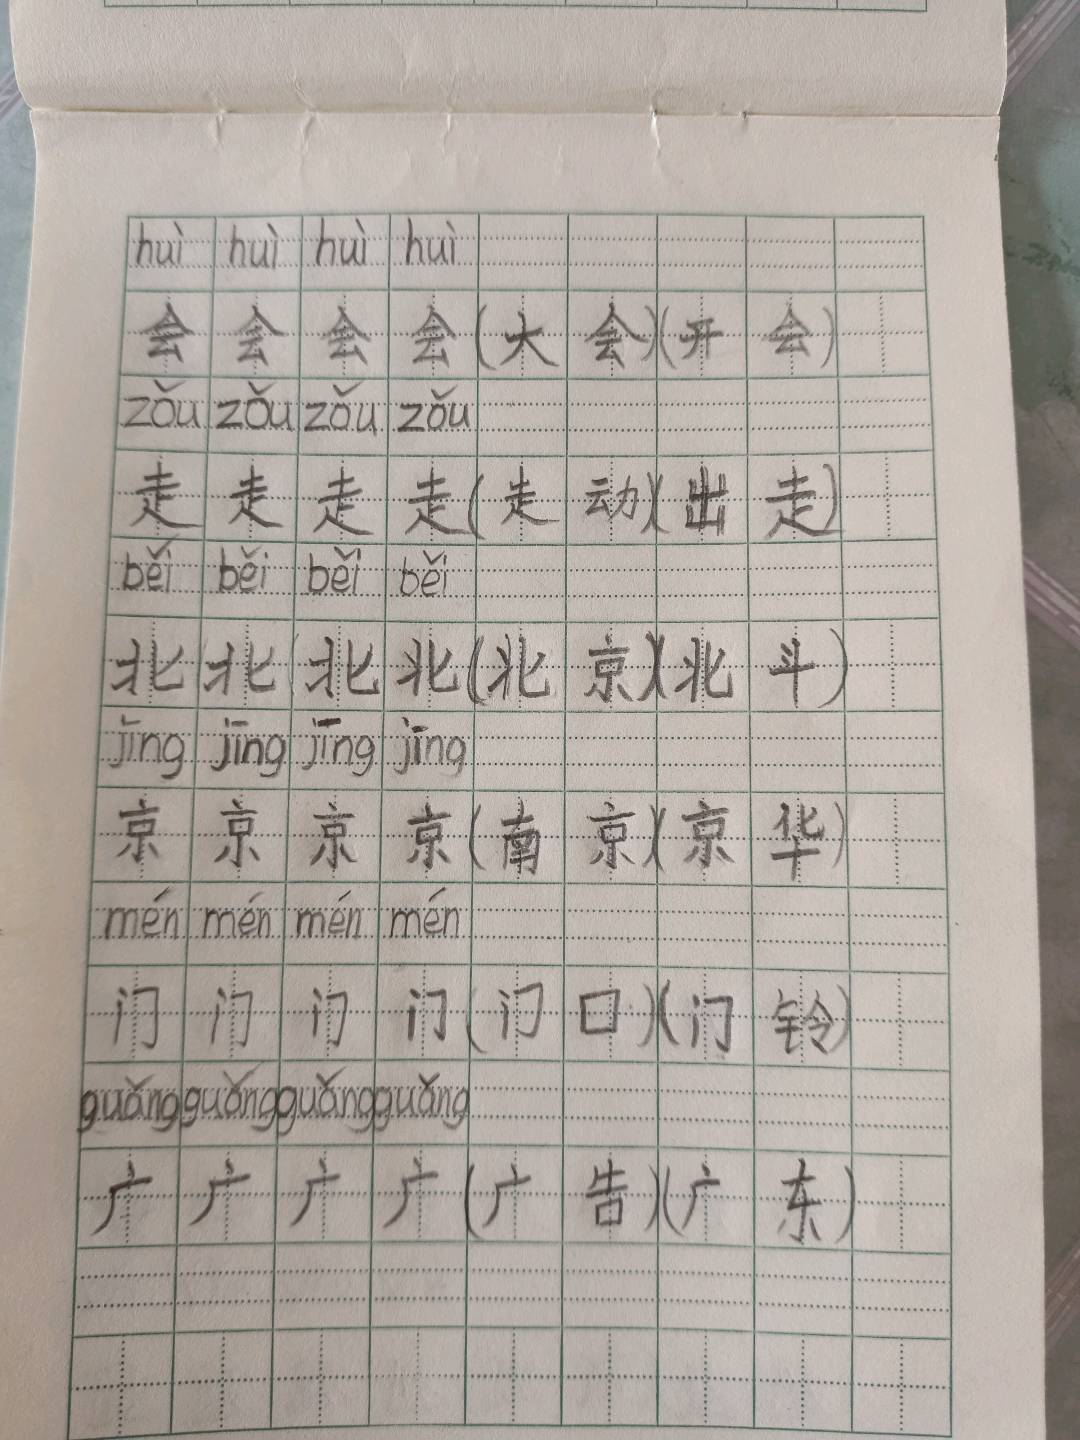 huì huì huì huì
会 会 会 会 (大 会)(开 会)
zǒu zǒu zǒu zǒu
走 走 走 走 (走 动)(出 走)
běi běi běi běi
北 北 北 北 (北 京)(北 斗)
jīng jīng jīng jīng
京 京 京 京 (南 京)(京 华)
mén mén mén mén
门 门 门 门 (门 口)(门 铃)
guǎng guǎng guǎng guǎng
广 广 广 广 (广 告)(广 东)